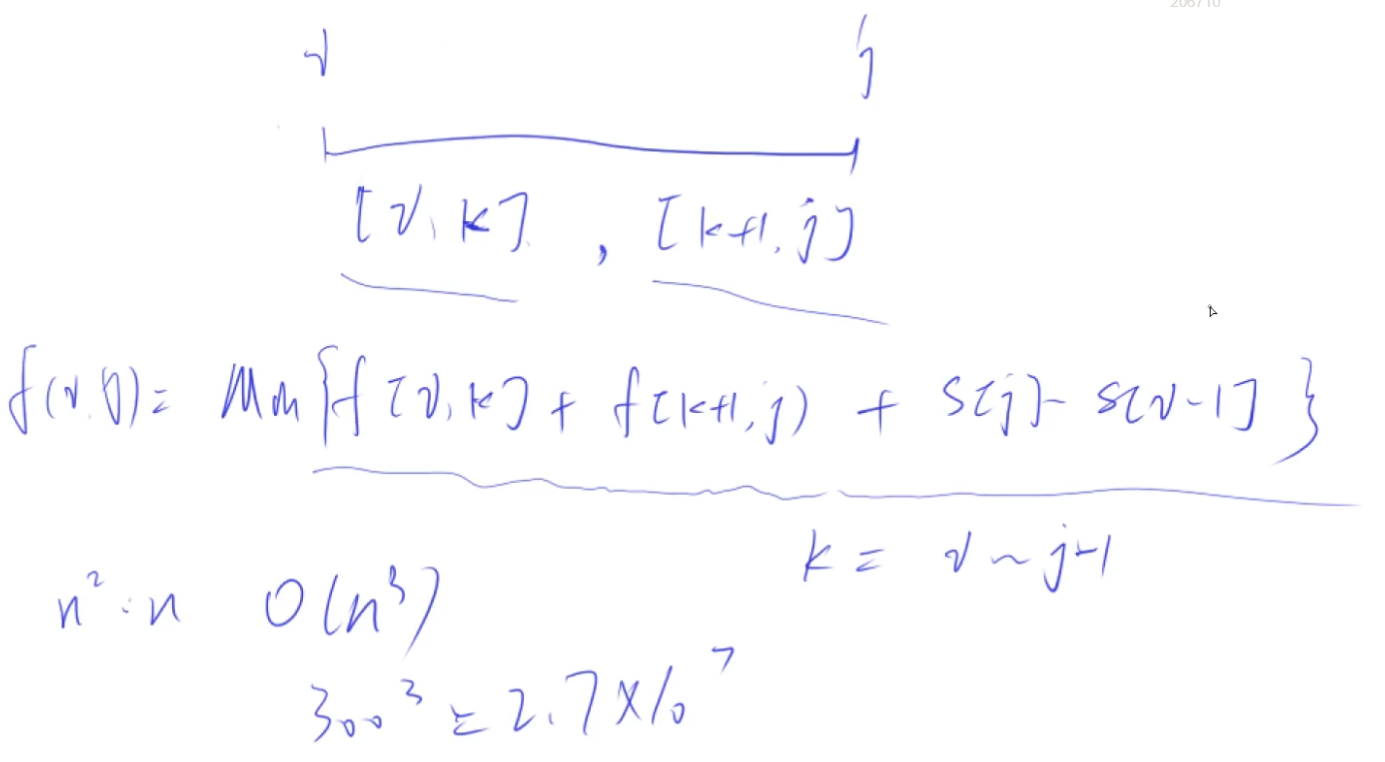 206710
i j
[i, k] , [k+1, j]
f(i, j) = Min{f[i, k] + f[k+1, j) + S[j] - S[i-1]}
k = i ~ j-1
n²·n O(n³)
300³ = 2.7×10⁷